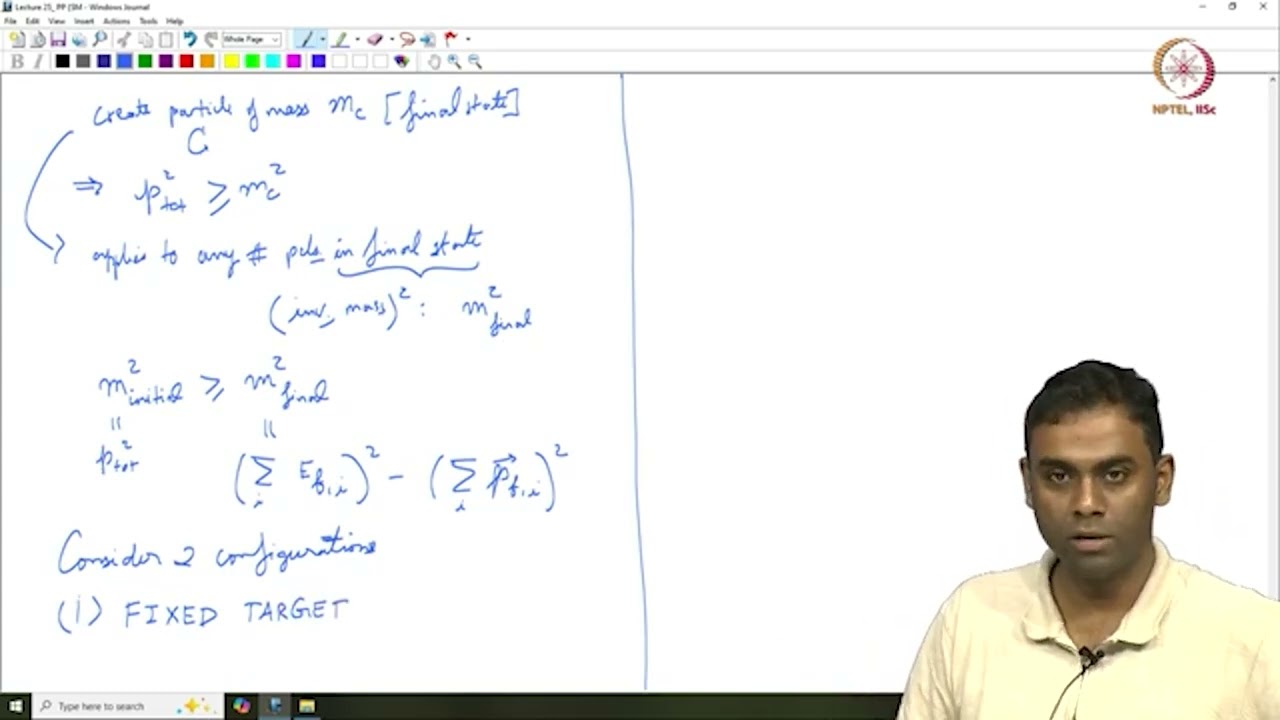 Lecture 25_ PP (SM - Windows Journal
File Edit View Insert Actions Tools Help
Whole Page
NPTEL, IISc
create particle of mass m_c [final state]
C
⇒ p²_tot ≥ m_c²
applies to any # pcls in final state
(inv. mass)² : m²_final
m²_initial ≥ m²_final
= =
p²_tot (∑_i E_f,i)² - (∑_i p⃗_f,i)²
Consider 2 configurations
(i) FIXED TARGET
Type here to search